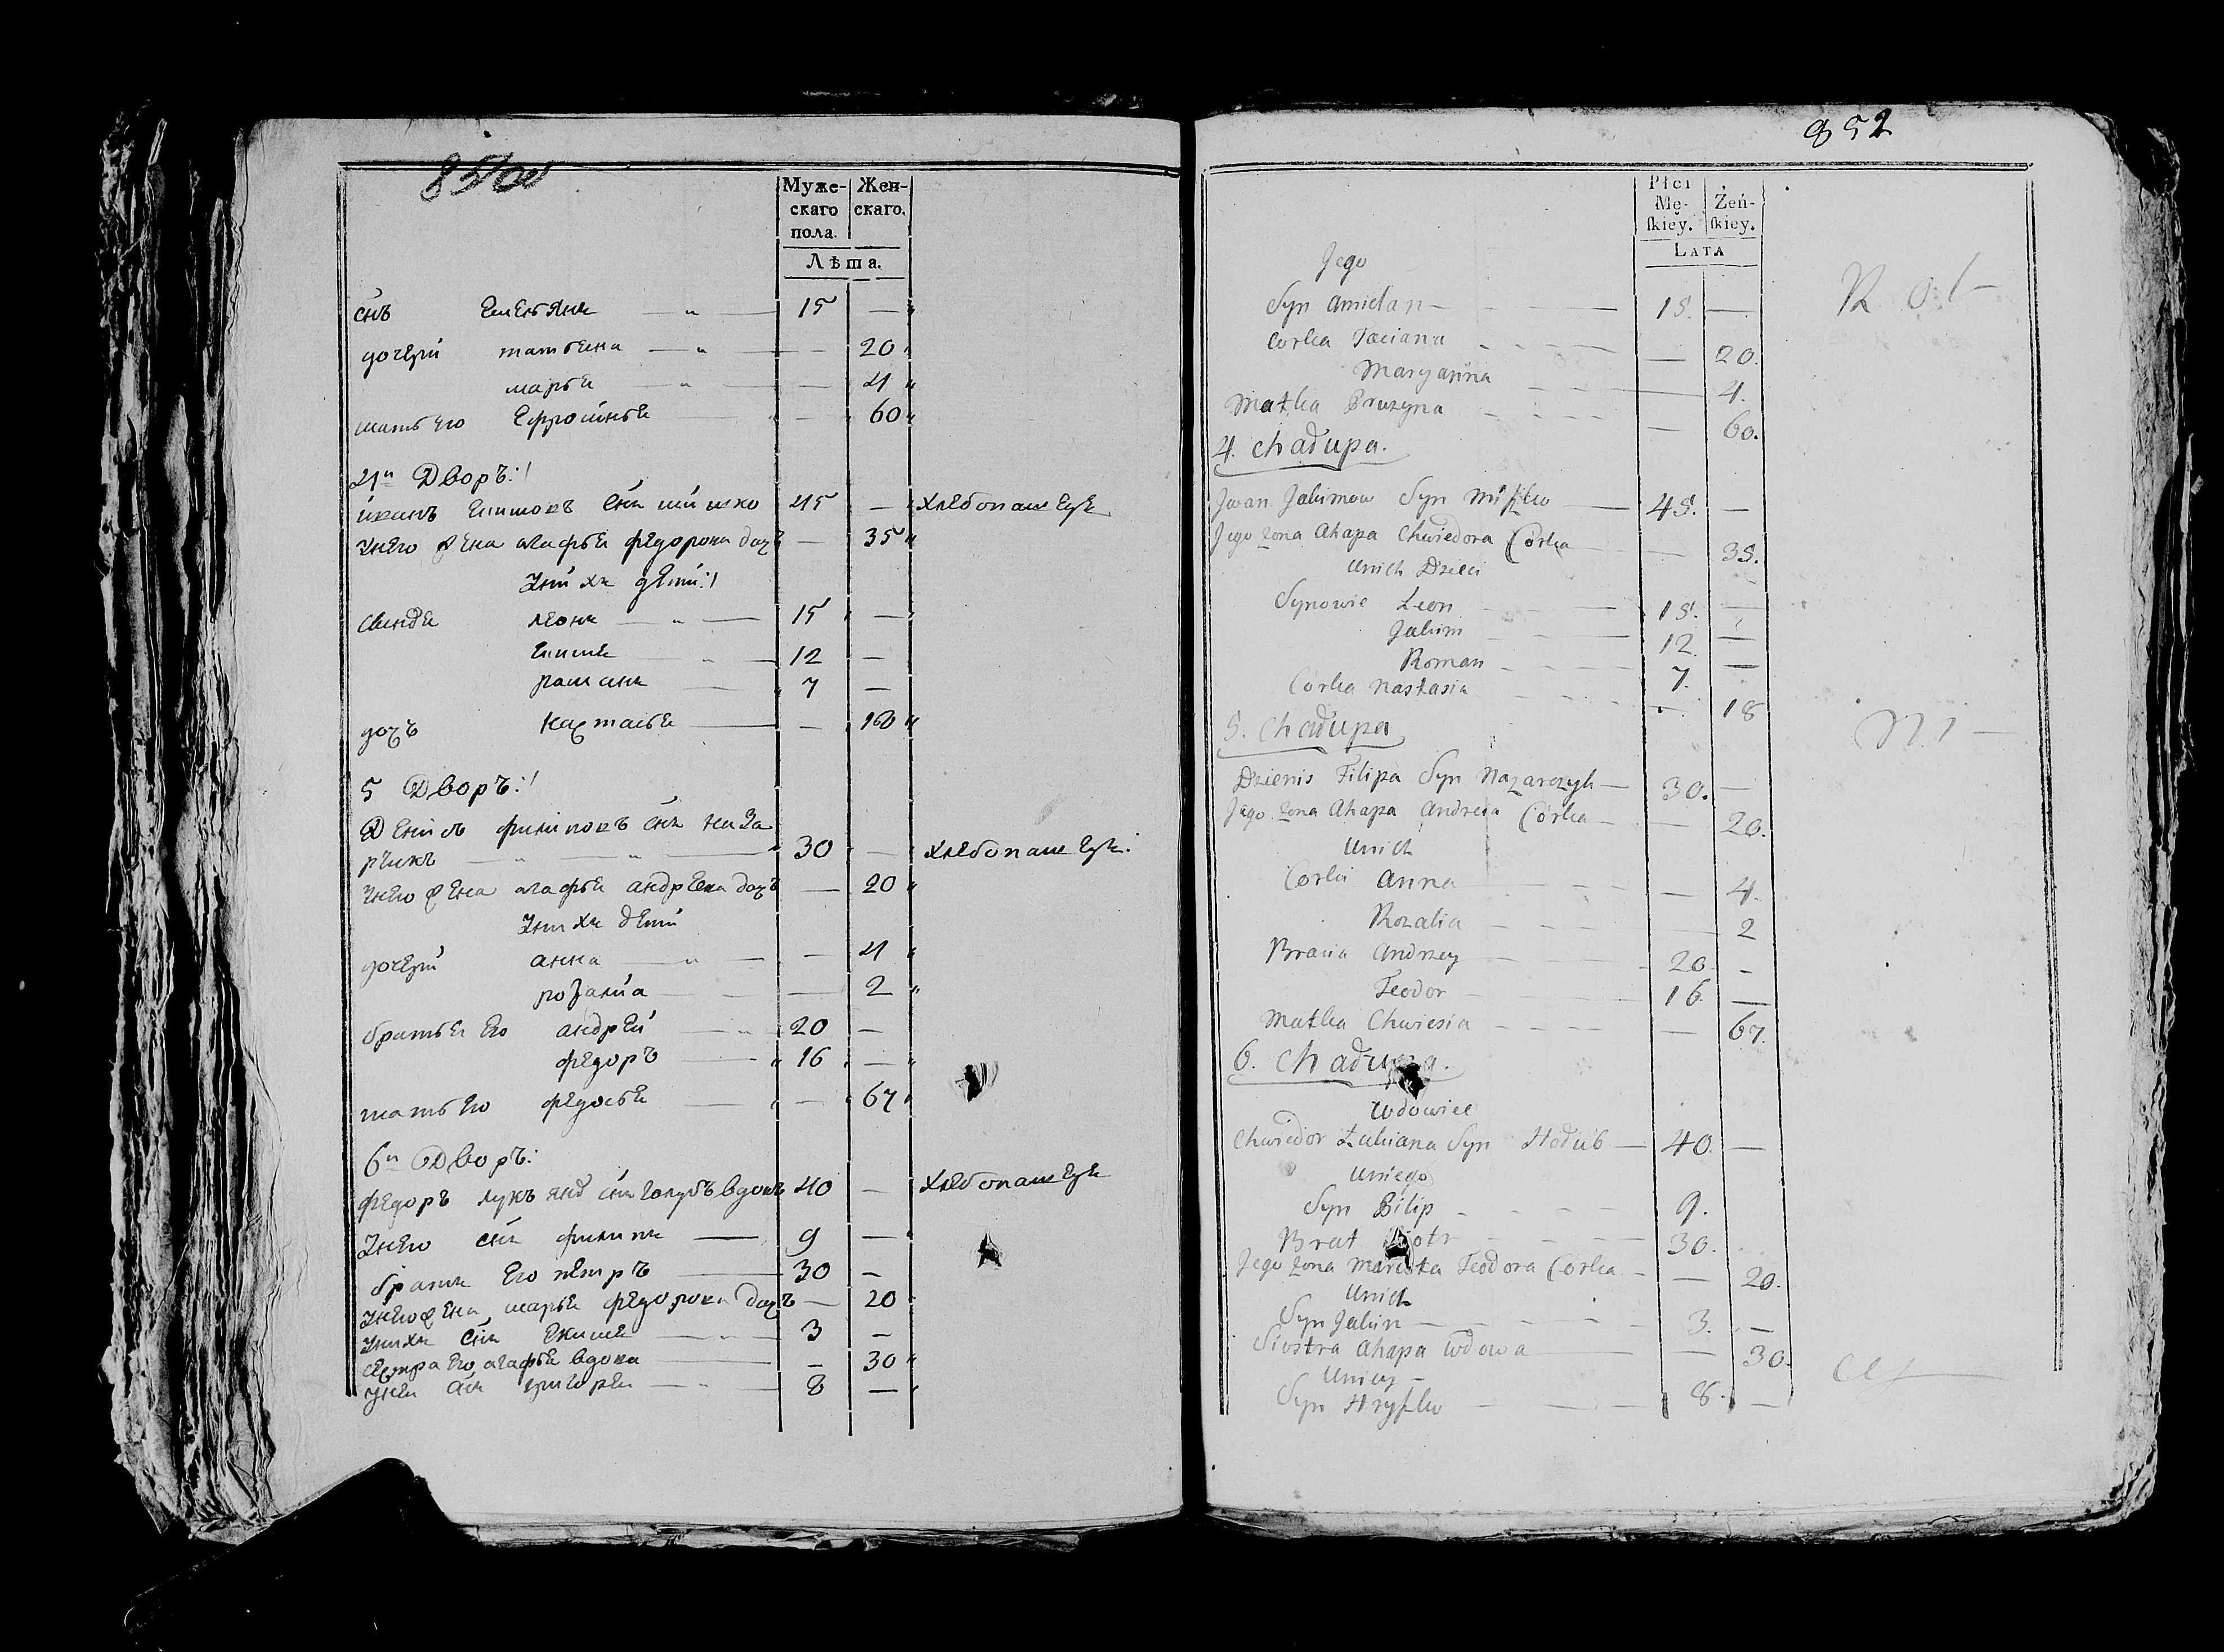 851об
Муже- Жен-
скаго скаго.
пола.
Лѣта.
снъ Емельянъ 15 —
дочери татьяна — 20
марья — 4
мать его Ефросинья — 60
4й Дворъ:
иванъ Екимовъ снъ мишко 45 — хлебопашецъ
унего жена агафья федорова дочь — 35
унихъ дети:
леонъ 15 —
Екимъ 12 —
романъ 7 —
дочь настасья — 18
5 Дворъ:
Денисъ филиповъ снъ наза
рчикъ 30 — хлебопашецъ.
унего жена агафья андреева дочь — 20
унихъ дети
дочери анна — 4
розалиа — 2
братья его андрей 20 —
федоръ 16 —
мать его федосья — 67
6й Дворъ:
федоръ лукьянов снъ голубъ вдовъ 40 — хлебопашецъ
унего снъ филипъ 9 —
братъ его петръ 30 —
унего жена марья федорова дочь — 20
унихъ снъ Екимъ 3 —
сестра его агафья вдова — 30
унеи снъ григореи 8 —
852
Płci
Mę- Żeń-
ſkiey. ſkiey.
LATA
Jego
Syn Amiełan 15. —
Corka Taciana — 20.
Maryanna — 4.
Matka Pruzyna — 60.
4. Chałupa.
Jwan Jakimow Syn Miſzko 45. —
Jego zona Ahapa Chwiedora Córka — 35.
Unich Dzieci
Synowie Leon 15. —
Jakim 12. —
Roman 7. —
Córka Nastasia — 18
5. Chałupa
Dzienis Filipa Syn Nazarczyk 30. —
Jego zona Ahapa Andreia Córka — 20.
Unich
Corki Anna — 4.
Rozalia — 2
Bracia Andrzey 20. —
Teodor 16. —
Matka Chwiesia — 67.
6. Chałupa.
Wdowiec
Chwiedor Łukiana Syn Hołub 40. —
Uniego
Syn Pilip 9.
Brat Piotr 30.
Jego zona Marcota Teodora Córka — 20.
Unich
Syn Jakim 3. —
Siostra Ahapa Wdowa — 30.
Uniey
Syn Hryſzko 8. —